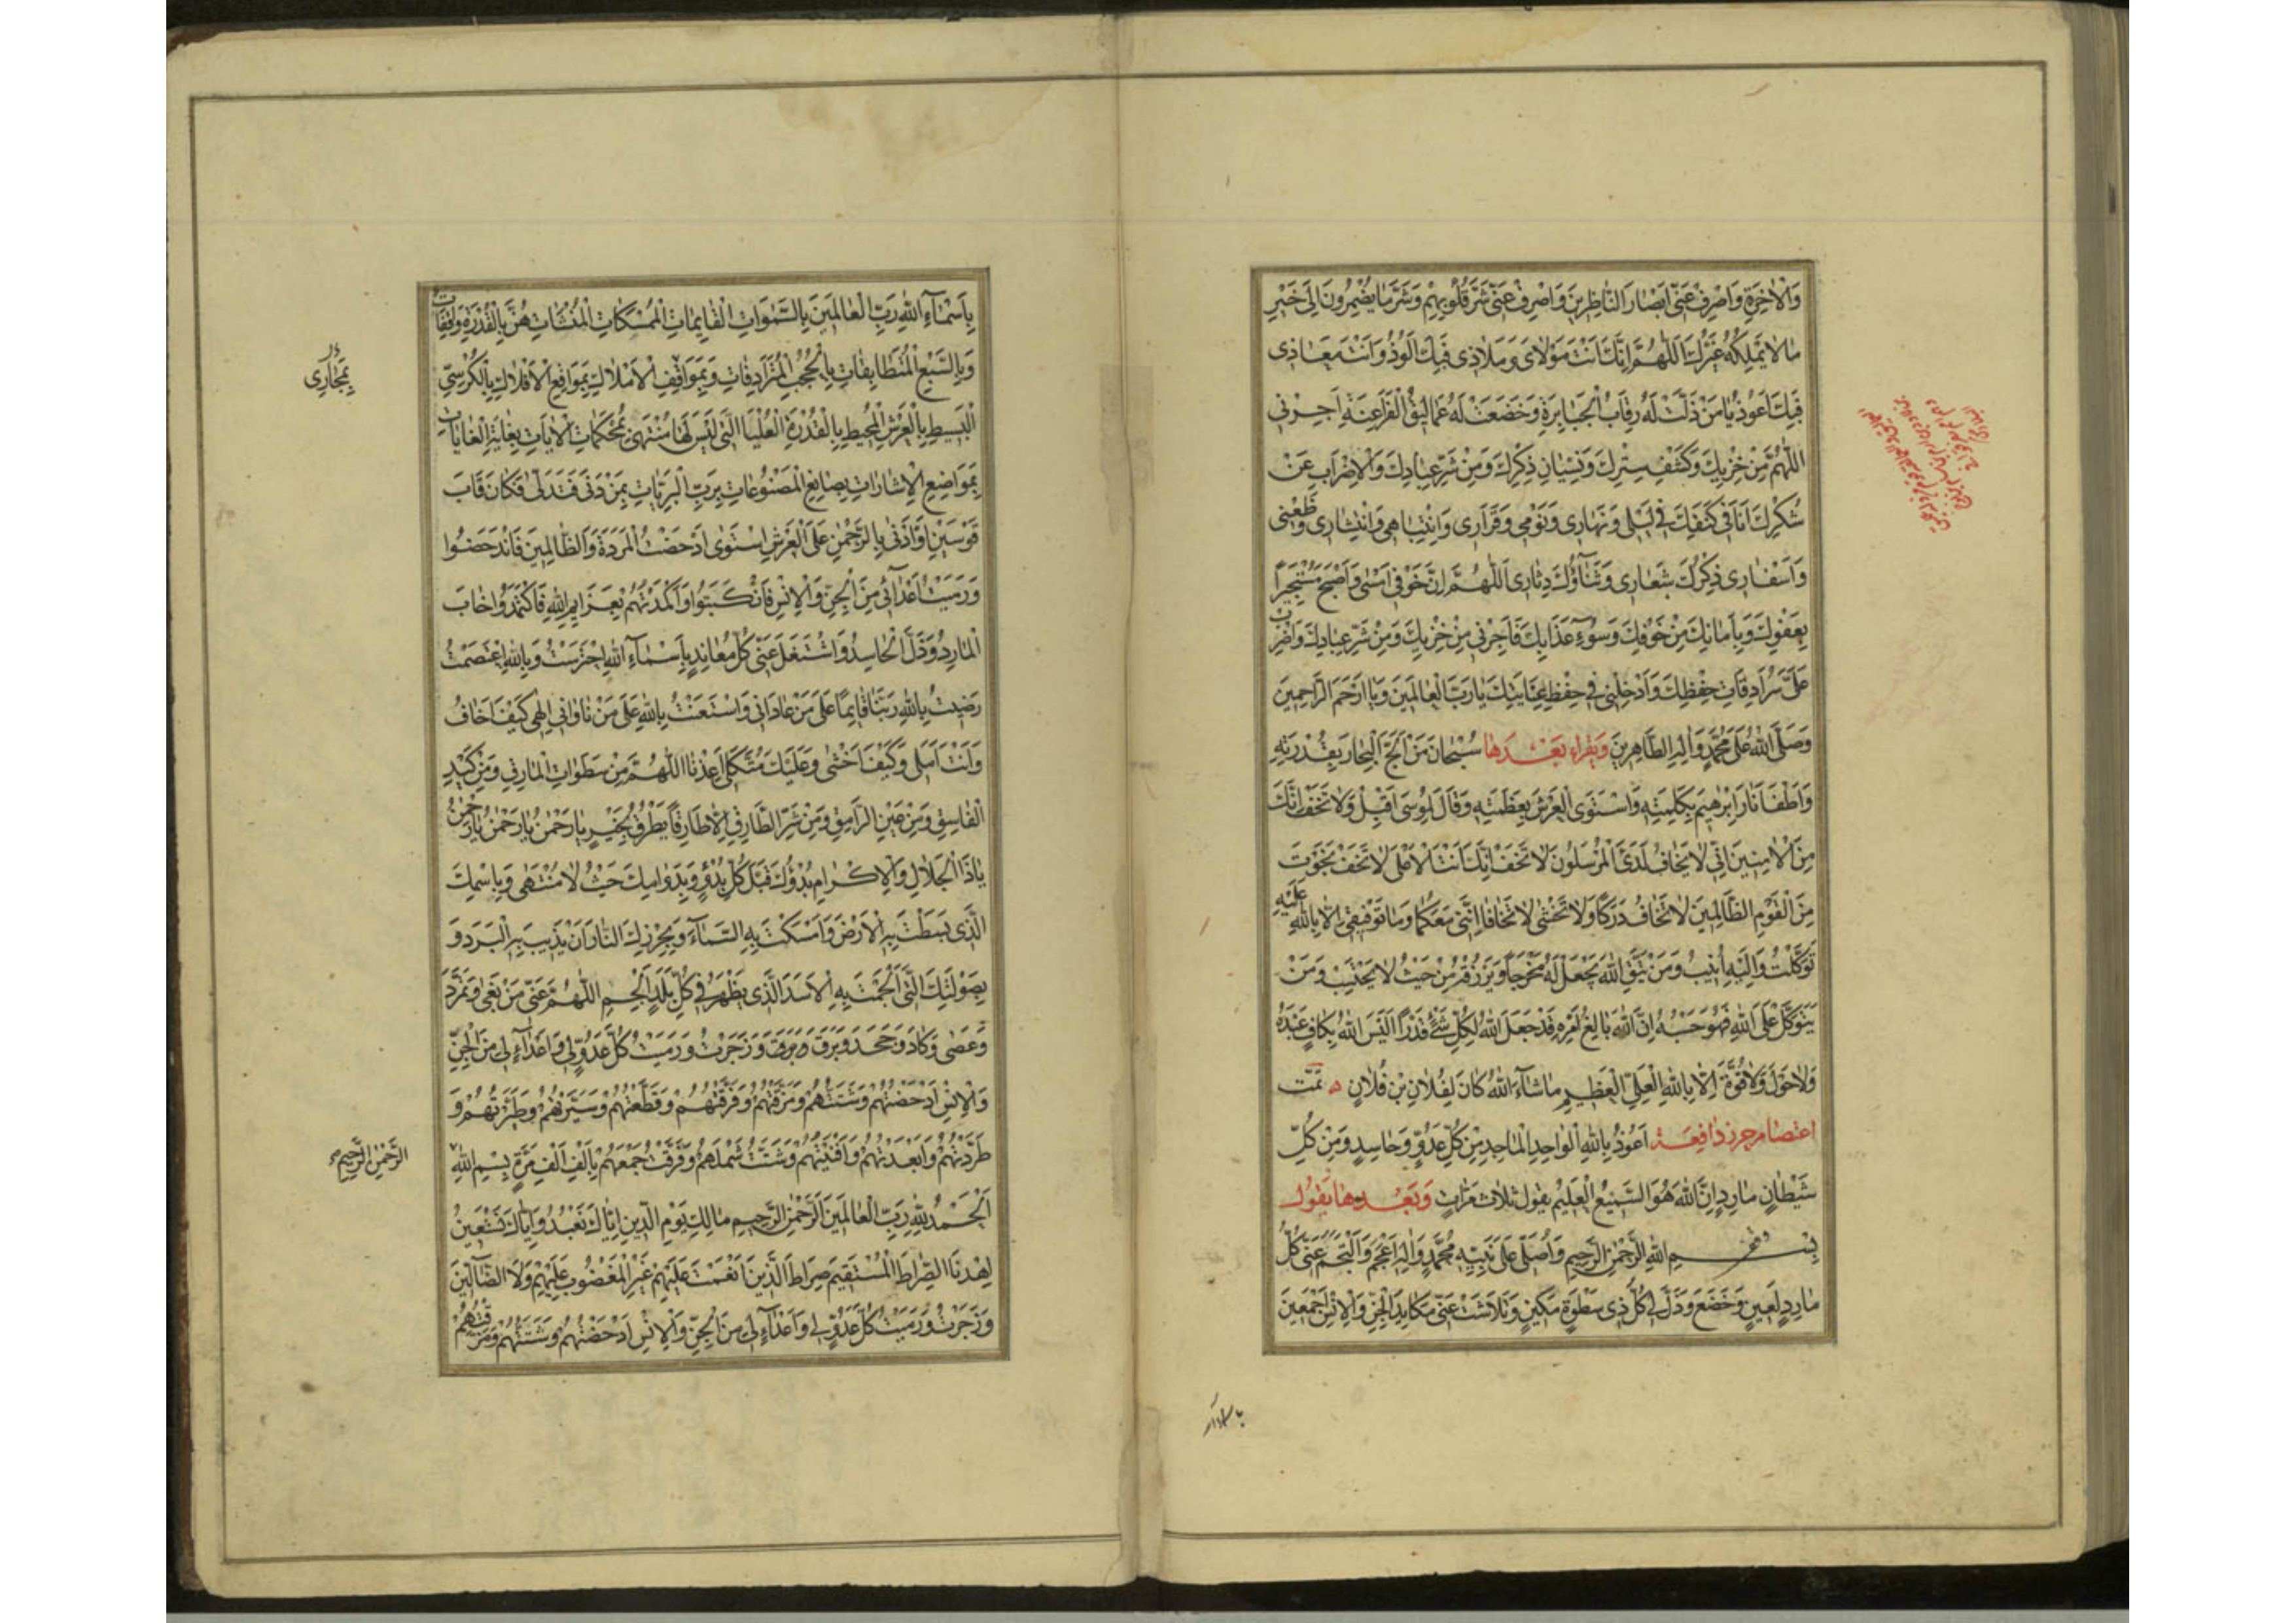 وَالْاٰخِرَةِ وَاصْرِفْ عَنّى اَبْصَارَ النَّاظِرِينَ وَاصْرِفْ عَنّى شَرَّ قُلُوبِهِمْ وَشَرَّ مَا يُضْمِرُونَ اِلَى خَيْرٍ
مَا لَا يَمْلِكُهُ غَيْرُكَ اَللّٰهُمَّ اِنَّكَ اَنْتَ مَوْلَاىَ وَمَلَاذِى فَبِكَ اَلُوذُ وَاَنْتَ مَعَاذِى
فَبِكَ اَعُوذُ يَا مَنْ ذَلَّتْ لَهُ رِقَابُ الْجَبَابِرَةِ وَخَضَعَتْ لَهُ عَمَالِيقُ الْفَرَاعِنَةِ اَجِرْنِى
اللّٰهُمَّ مِنْ خِزْيِكَ وَكَشْفِ سِتْرِكَ وَنِسْيَانِ ذِكْرِكَ وَمِنْ شَرِّ عِبَادِكَ وَالْاِضْرَابِ عَنْ
شُكْرِكَ اَنَا فِى كَنَفِكَ فِى لَيْلِى وَنَهَارِى وَنَوْمِى وَقَرَارِى وَانْتِبَاهِى وَانْتِشَارِى وَظَعْنِى
وَاَسْفَارِى ذِكْرُكَ شِعَارِى وَثَنَاؤُكَ دِثَارِى اَللّٰهُمَّ اِنَّ خَوْفِى اَمْسٰى وَاَصْبَحَ مُسْتَجِيرًا
بِعَفْوِكَ وَبِاَمَانِكَ مِنْ خَوْفِكَ وَسُوۤءِ عَذَابِكَ فَاَجِرْنِى مِنْ خِزْيِكَ وَمِنْ شَرِّ عِبَادِكَ وَاضْرِبْ
عَلَىَّ سُرَادِقَاتِ حِفْظِكَ وَاَدْخِلْنِى فِى حِفْظِ عِنَايَتِكَ يَا رَبَّ الْعَالَمِينَ وَيَا اَرْحَمَ الرَّاحِمِينَ
وَصَلَّى اللّٰهُ عَلَى مُحَمَّدٍ وَاٰلِهِ الطَّاهِرِينَ وَيقراء بَعْدَهَا سُبْحَانَ مَنْ اَلْجَّ الْبِحَارَ بِقُدْرَتِهِ
وَاَطْفَا نَارَ اِبْرٰهِيمَ بِكَلِمَتِهِ وَاسْتَوَى الْعَرْشَ بِعَظَمَتِهِ وَقَالَ لِمُوسَى اَقْبِلْ وَلَا تَخَفْ اِنَّكَ
مِنَ الْاٰمِنِينَ اِنِّى لَا يَخَافُ لَدَىَّ الْمُرْسَلُونَ لَا تَخَفْ اِنَّكَ اَنْتَ الْاَعْلَى لَا تَخَفْ نَجَوْتَ
مِنَ الْقَوْمِ الظَّالِمِينَ لَا تَخَافُ دَرَكًا وَلَا تَخْشٰى لَا تَخَافَا اِنَّنِى مَعَكُمَا وَمَا تَوْفِيقِى اِلَّا بِاللّٰهِ عَلَيْهِ
تَوَكَّلْتُ وَاِلَيْهِ اُنِيبُ وَمَنْ يَتَّقِ اللّٰهَ يَجْعَلْ لَهُ مَخْرَجًا وَيَرْزُقْهُ مِنْ حَيْثُ لَا يَحْتَسِبُ وَمَنْ
يَتَوَكَّلْ عَلَى اللّٰهِ فَهُوَ حَسْبُهُ اِنَّ اللّٰهَ بَالِغُ اَمْرِهِ قَدْ جَعَلَ اللّٰهُ لِكُلِّ شَىْءٍ قَدْرًا اَلَيْسَ اللّٰهُ بِكَافٍ عَبْدَهُ
وَلَا حَوْلَ وَلَا قُوَّةَ اِلَّا بِاللّٰهِ الْعَلِىِّ الْعَظِيمِ مَا شَاۤءَ اللّٰهُ كَانَ لِفُلَانِ بْنِ فُلَانٍ تَمَّت
اعتصام حرز دافعة اَعُوذُ بِاللّٰهِ الْوَاحِدِ الْمَاجِدِ مِنْ كُلِّ عَدُوٍّ وَحَاسِدٍ وَمِنْ كُلِّ
شَيْطَانٍ مَارِدٍ اِنَّ اللّٰهَ هُوَ السَّمِيعُ الْعَلِيمُ يقول ثلاث مَرَّاتٍ وَبَعْدها يَقُولُ
بِسْمِ اللّٰهِ الرَّحْمٰنِ الرَّحِيمِ وَاُصَلِّى عَلَى نَبِيِّهِ مُحَمَّدٍ وَاٰلِهِ وَالْتَجَمَ عَنّى كُلُّ
مَارِدٍ لَعِينٍ وَخَضَعَ وَذَلَّ لِى كُلُّ ذِى سَطْوَةٍ مَكِينٍ وَتَلَاشَتْ عَنّى مَكَايِدُ الْجِنِّ وَالْاِنْسِ اَجْمَعِينَ
بِاَسْمَاۤءِ اللّٰهِ رَبِّ الْعَالَمِينَ بِالسَّمٰوَاتِ الْقَايِمَاتِ الْمُمْسَكَاتِ الْمُنْشَاٰتِ هُنَّ بِالْقُدْرَةِ وَاقِفَاتٌ
وَبِالسَّبْعِ الْمُتَطَابِقَاتِ بِالْحُجُبِ الْمُتَرَادِفَاتِ وَبِمَوَاقِفِ الْاَمْلَاكِ بِمَوَاقِعِ الْاَفْلَاكِ بِالْكُرْسِىِّ
بِمَجَارِى
الْبَسِيطِ بِالْعَرْشِ الْمُحِيطِ بِالْقُدْرَةِ الْعُلْيَا الَّتِى لَيْسَ لَهَا مُنْتَهٰى بِمُحْكَمَاتِ الْاٰيَاتِ بِغَايَةِ الْغَايَاتِ
بِمَوَاضِعِ الْاِشَارَاتِ بِصَانِعِ الْمَصْنُوعَاتِ بِرَبِّ الْبَرِيَّاتِ بِمَنْ دَنَى فَتَدَلّٰى فَكَانَ قَابَ
قَوْسَيْنِ اَوْ اَدْنٰى بِالرَّحْمٰنِ عَلَى الْعَرْشِ اسْتَوٰى اَدْحَضْتُ الْمَرَدَةَ وَالظَّالِمِينَ فَانْدَحَضُوا
وَرَمَيْتُ اَعْدَاۤئِى مِنَ الْجِنِّ وَالْاِنْسِ فَانْكَبَتُوا وَاَكْمَدْتُهُمْ بِعَزَايِمِ اللّٰهِ فَاكْتَمَدُوا خَابَ
الْمَارِدُ وَذَلَّ الْحَاسِدُ وَاشْتَغَلَ عَنّى كُلُّ مُعَانِدٍ بِاَسْمَاۤءِ اللّٰهِ احْتَرَسْتُ وَبِاللّٰهِ اعْتَصَمْتُ
رَضِيتُ بِاللّٰهِ رَبًّا قَايِمًا عَلَى مَنْ عَادَانِى وَاسْتَعَنْتُ بِاللّٰهِ عَلَى مَنْ نَاوَانِى اِلٰهِى كَيْفَ اَخَافُ
وَاَنْتَ اَمَلِى وَكَيْفَ اَخْشٰى وَعَلَيْكَ مُتَّكَلِى اَعِذْنَا اللّٰهُمَّ مِنْ سَطَوَاتِ الْمَارِقِ وَمِنْ كَيْدِ
الْفَاسِقِ وَمِنْ عَيْنِ الرَّامِقِ وَمِنْ شَرِّ الطَّارِقِ اِلَّا طَارِقًا يَطْرُقُ بِخَيْرٍ يَا رَحْمٰنُ يَا رَحْمٰنُ يَا رَحْمٰنُ
يَا ذَا الْجَلَالِ وَالْاِكْرَامِ بُدْؤُكَ قَبْلَ كُلِّ بُدْؤٍ وَبِدَوَامِكَ حَيْثُ لَا مُنْتَهٰى وَبِاسْمِكَ
الَّذِى بَسَطْتَ بِهِ الْاَرْضَ وَاَمْسَكْتَ بِهِ السَّمَاۤءَ النَّارَ اَنْ يُذِيبَ بِهِ الْبَرَدَ وَ
بِصَوْلَتِكَ الَّتِى اَلْجَمْتَ بِهِ الْاَسَدَ الَّذِى يَظْهَرُ فِى كُلِّ بَلَدٍ اَلْجِمِ اللّٰهُمَّ عَنّى مَنْ بَغٰى وَتَمَرَّدَ
وَعَصٰى وَكَادَ وَجَحَدَ وَبَرَقَ وَزَجَرْتُ وَرَمَيْتُ كُلَّ عَدُوٍّ لِى وَاَعْدَاۤءٍ لِى مِنَ الْجِنِّ
وَالْاِنْسِ اَدْحَضْتُهُمْ وَشَتَتْتُهُمْ وَمَزَّقْتُهُمْ وَفَرَّقْتُهُمْ وَقَطَّعْتُهُمْ وَسَيَّرْتُهُمْ وَطَيَّرْتُهُمْ وَ
طَرَدْتُهُمْ وَاَبْعَدْتُهُمْ وَاَفْنَيْتُهُمْ وَشَتَّتُّ شَمْلَهُمْ وَفَرَّقْتُ جَمْعَهُمْ بِاَلْفِ اَلْفِ مَرَّةٍ بِسْمِ اللّٰهِ
الرَّحْمٰنِ الرَّحِيمِ
اَلْحَمْدُ لِلّٰهِ رَبِّ الْعَالَمِينَ اَلرَّحْمٰنِ الرَّحِيمِ مَالِكِ يَوْمِ الدِّينِ اِيَّاكَ نَعْبُدُ وَاِيَّاكَ نَسْتَعِينُ
اِهْدِنَا الصِّرَاطَ الْمُسْتَقِيمَ صِرَاطَ الَّذِينَ اَنْعَمْتَ عَلَيْهِمْ غَيْرِ الْمَغْضُوبِ عَلَيْهِمْ وَلَا الضَّاۤلِّينَ
وَزَجَرْتُ وَرَمَيْتُ كُلَّ عَدُوٍّ لِى وَاَعْدَاۤءٍ لِى مِنَ الْجِنِّ وَالْاِنْسِ اَدْحَضْتُهُمْ وَشَتَتْتُهُمْ وَمَزَّقْتُهُمْ